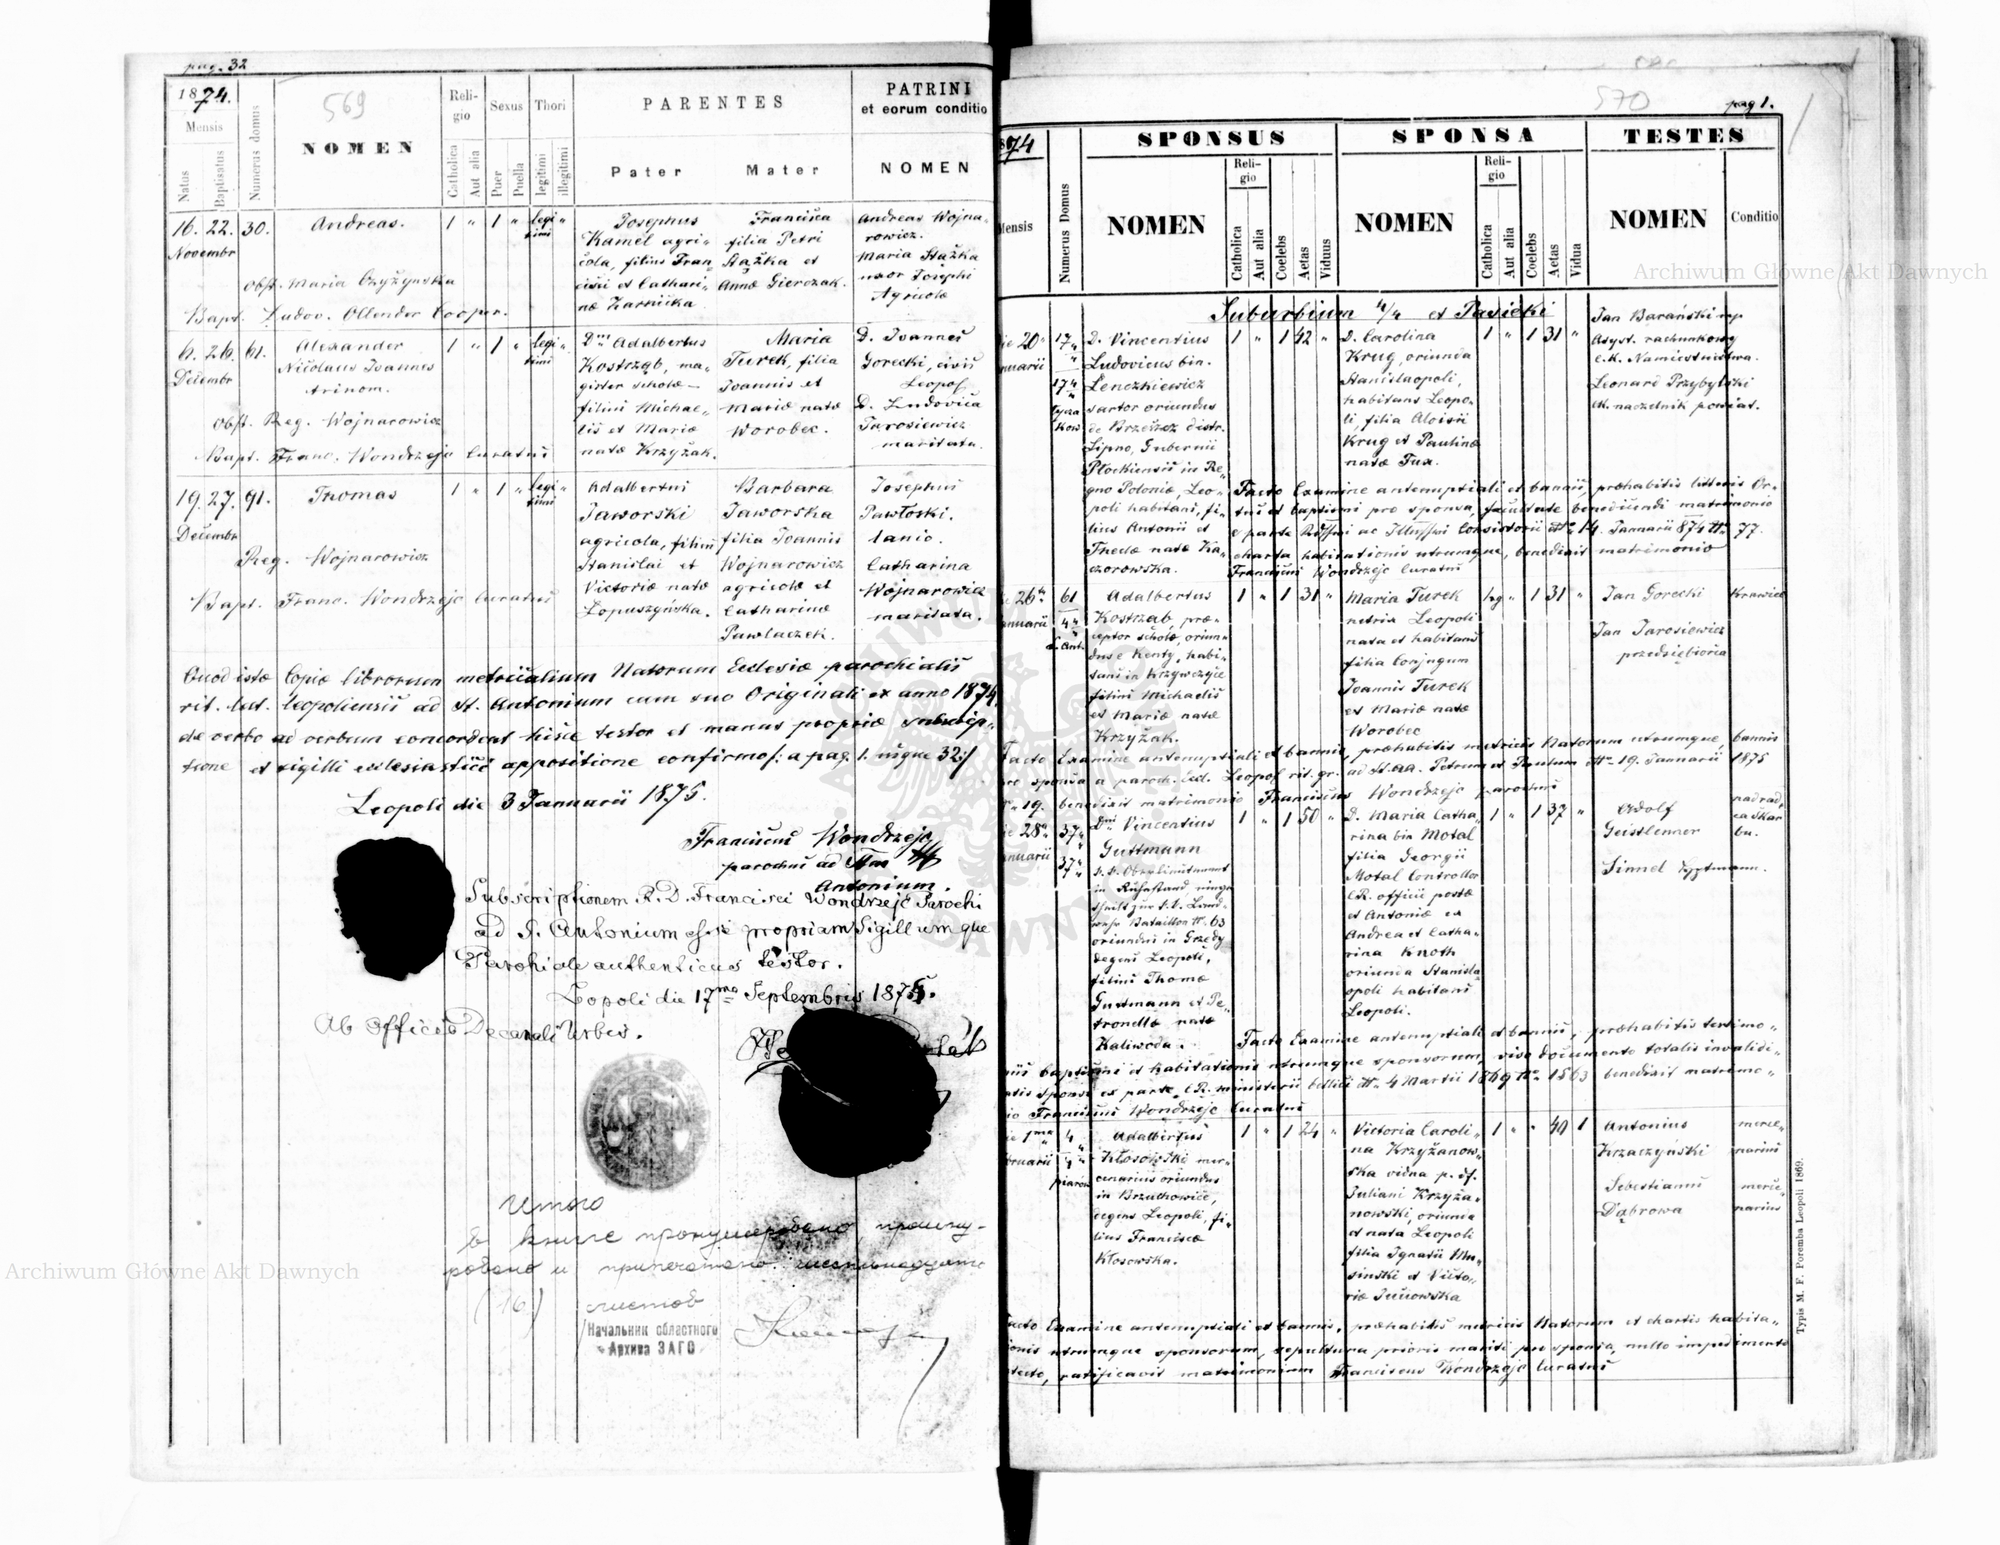 pag. 32
1874.
569
Mensis
Natus
Baptisatus
Numerus domus
NOMEN
Religio
Catholica
Aut alia
Sexus
Puer
Puella
Thori
legitimi
illegitimi
PARENTES
Pater
Mater
PATRINI
et eorum conditio
NOMEN
16. 22. 30.
Novembr
Andreas.
1 " 1 " legi "
timi
Josephus
Kamel agri-
cola, filius Fran-
cisci et Cathari-
næ Zarniika
Francisca
filia Petri
Stążka et
Annæ Gierczak.
Andreas Wojna-
rowicz.
Maria Stążka
uxor Josephi
Agricolæ
Obst. Maria Czyżynska
Bapt. Ludov. Ollender Cooper.
6. 26. 61.
Decembr
Alexander
Nicolaus Joannes
trinom.
1 " 1 " legi "
timi
Dnus Adalbertus
Kostrząb, ma-
gister scholæ
filius Michae-
lis et Mariæ
natæ Krzyżak.
Maria
Turek, filia
Joannis et
Mariæ natæ
Worobec.
D. Joannes
Gorecki, civis
Leopol.
D. Ludovica
Jarosiewicz
maritata.
Obst. Reg. Wojnarowicz
Bapt. Franc. Wondrzejc Curatus
19. 27. 91.
Decembr
Thomas
1 " 1 " legi "
timi
Adalbertus
Jaworski
agricola, filius
Stanislai et
Victoriæ natæ
Lopuszyńska.
Barbara
Jaworska
filia Joannis
Wojnarowicz
agricolæ et
Catharinæ
Pawlaczek.
Josephus
Pawłoski.
lanio.
Catharina
Wojnarowicz
maritata.
Reg. Wojnarowicz
Bapt. Franc. Wondrzejc Curatus
Quod istæ Copiæ librorum metricalium Natorum Ecclesiæ parochialis
rit. lat. Leopoliensis ad St. Antonium cum suo Originali ex anno 1874.
de verbo ad verbum concordent hisce testor et manus propriæ subscrip-
tione et sigilli ecclesiastici appositione confirmo /: a pag. 1. usque 32 :/
Leopoli die 3 Januarii 1875.
Franciscus Wondrzejc
parochus ad Stum
Antonium.
Subscriptionem R. D. Francisci Wondrzejc Parochi
ad S. Antonium esse propriam Sigillumque
Parochiale authenticum testor.
Leopoli die 17ma Septembris 1875.
Ab Officio Decanali Urbis.
Итого
в книге пронумеровано, прошну-
ровано и припечатано шестнадцать
(16) листов
Начальник областного
Архива ЗАГС
570
pag 1.
1874
Mensis
Numerus Domus
SPONSUS
NOMEN
Religio
Catholica
Aut alia
Coelebs
Aetas
Viduus
SPONSA
NOMEN
Religio
Catholica
Aut alia
Coelebs
Aetas
Vidua
TESTES
NOMEN
Conditio
Suburbium 4/4 et Pasieki
ie 20"
nuarii
17 4/4
17 4/4
Łycza
kow
D. Vincentius
Ludovicus bin.
Lenczkiewicz
sartor oriundus
de Brzeżce distr.
Lipno, Gubernii
Płockiensis in Re-
gno Poloniæ, Leo-
poli habitans, fi-
lius Antonii et
Theclæ natæ Ka-
czorowska.
1 " 1 42 "
D. Carolina
Krug, oriunda
Stanislaopoli,
habitans Leopo-
li, filia Aloisii
Krug et Paulinæ
natæ Fux.
1 " 1 31 "
Jan Barański mp
Asyst. rachunkowy
c.k. Namiestnictwa.
Leonard Przybylski
ck. naczelnik powiat.
Facto Examine antenuptiali et bannis, præhabitis litteris Or-
tus et baptismi pro sponsa, facultate benedicendi matrimonio
e parte Rssmi ac Illussmi Consistorii ddto 14. Januarii 874 Nro 77.
charta habitationis utrumque, benedixit matrimonio
Franciscus Wondrzejc Curatus
ie 26"
nuarii
61
4/4
S. Ant.
Adalbertus
Kostrząb, præ-
ceptor scholæ, oriun-
dus e Kenty, habi-
tans in Krzywczyce
filius Michaelis
et Mariæ natæ
Krzyżak.
1 " 1 31 "
Maria Turek
nutria Leopoli
nata et habitans
filia Conjugum
Joannis Turek
et Mariæ natæ
Worobec
1 31 "
Jan Gorecki
Krawiec
Jan Jarosiewicz
przedsiębiorca
Facto Examine antenuptiali et bannis, præhabitis metricis Natorum utrumque, bannis
pro sponsa a paroch. Eccl. Leopol rit. gr. ad St.aa. Petrum et Paulum ddto 19. Januarii 1875
N. 19. benedixit matrimonio Franciscus Wondrzejc parochus
ie 28"
nuarii
37 4/4
37 4/4
Dnus Vincentius
Guttmann
k.k. Oberlieutenant
in Ruhestand einge-
theilt zur k.k. Land-
wehr Bataillon N. 63
oriundus in Grzędy
degens Leopoli,
filius Thomæ
Guttmann et Pe-
tronellæ natæ
Kaliwoda.
1 " 1 50 "
D. Maria Catha-
rina bin Motal
filia Georgii
Motal Controllor
CR. officii postæ
et Antoniæ ex
Andrea et Catha-
rina Knoth
oriunda Stanisla-
opoli habitans
Leopoli.
1 " 1 37 "
Adolf
Geistlenner
nadrad.
ca skar
bu.
Facto Examine antenuptiali et bannis, præhabitis testimo-
niis baptismi et habitationis utrumque sponsorum, viso documento totalis invalidi-
tatis sponsi ex parte CR. ministerii bellici ddto 4 Martii 1869 Nro 1563 benedixit matrimo-
nio Franciscus Wondrzejc Curatus
ie 1ma
bruarii
4
4/4
piarow
Adalbertus
Kłosowski mer-
cenarius oriundus
in Brzuchowice,
degens Leopoli, fi-
lius Franciscæ
Kłosowska.
1 " 1 24 "
Victoria Caroli-
na Krzyżanow-
ska vidua p. def.
Juliani Krzyża-
nowski, oriunda
et nata Leopoli
filia Ignatii Mu-
sinski et Victo-
riæ Juciowska
1 " " 40 1
Antonius
Krzaczyński
merce-
narius
Sebestianus
Dąbrowa
merce-
narius
Facto Examine antenuptiali et bannis, præhabitis metricis Natorum et chartis habita-
tionis utrumque sponsorum, sepultura prioris mariti pro sponsa, nullo impedimento
detecto, ratificavit matrimonium Franciscus Wondrzejc Curatus
Typis M. F. Poremba Leopoli 1869.
Archiwum Główne Akt Dawnych
Archiwum Główne Akt Dawnych